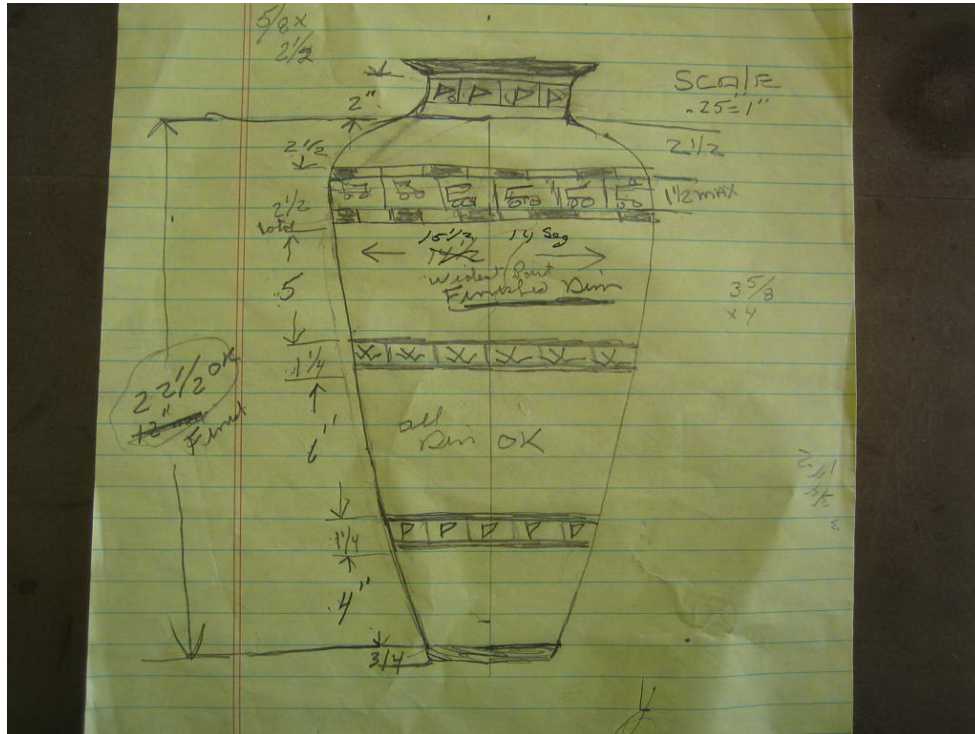 5/8 x
2 1/2
SCAlE
.25"=1"
2"
2 1/2
2 1/2
1 1/2 MAX
2 1/2
total
15 1/2 14 Seg
14 1/2
Widest Point
Finished Dim
5
3 5/8
x 4
1 1/4
22 1/2 OK
12"
Finish
6"
all
Dim OK
1 1/4
4"
3/4